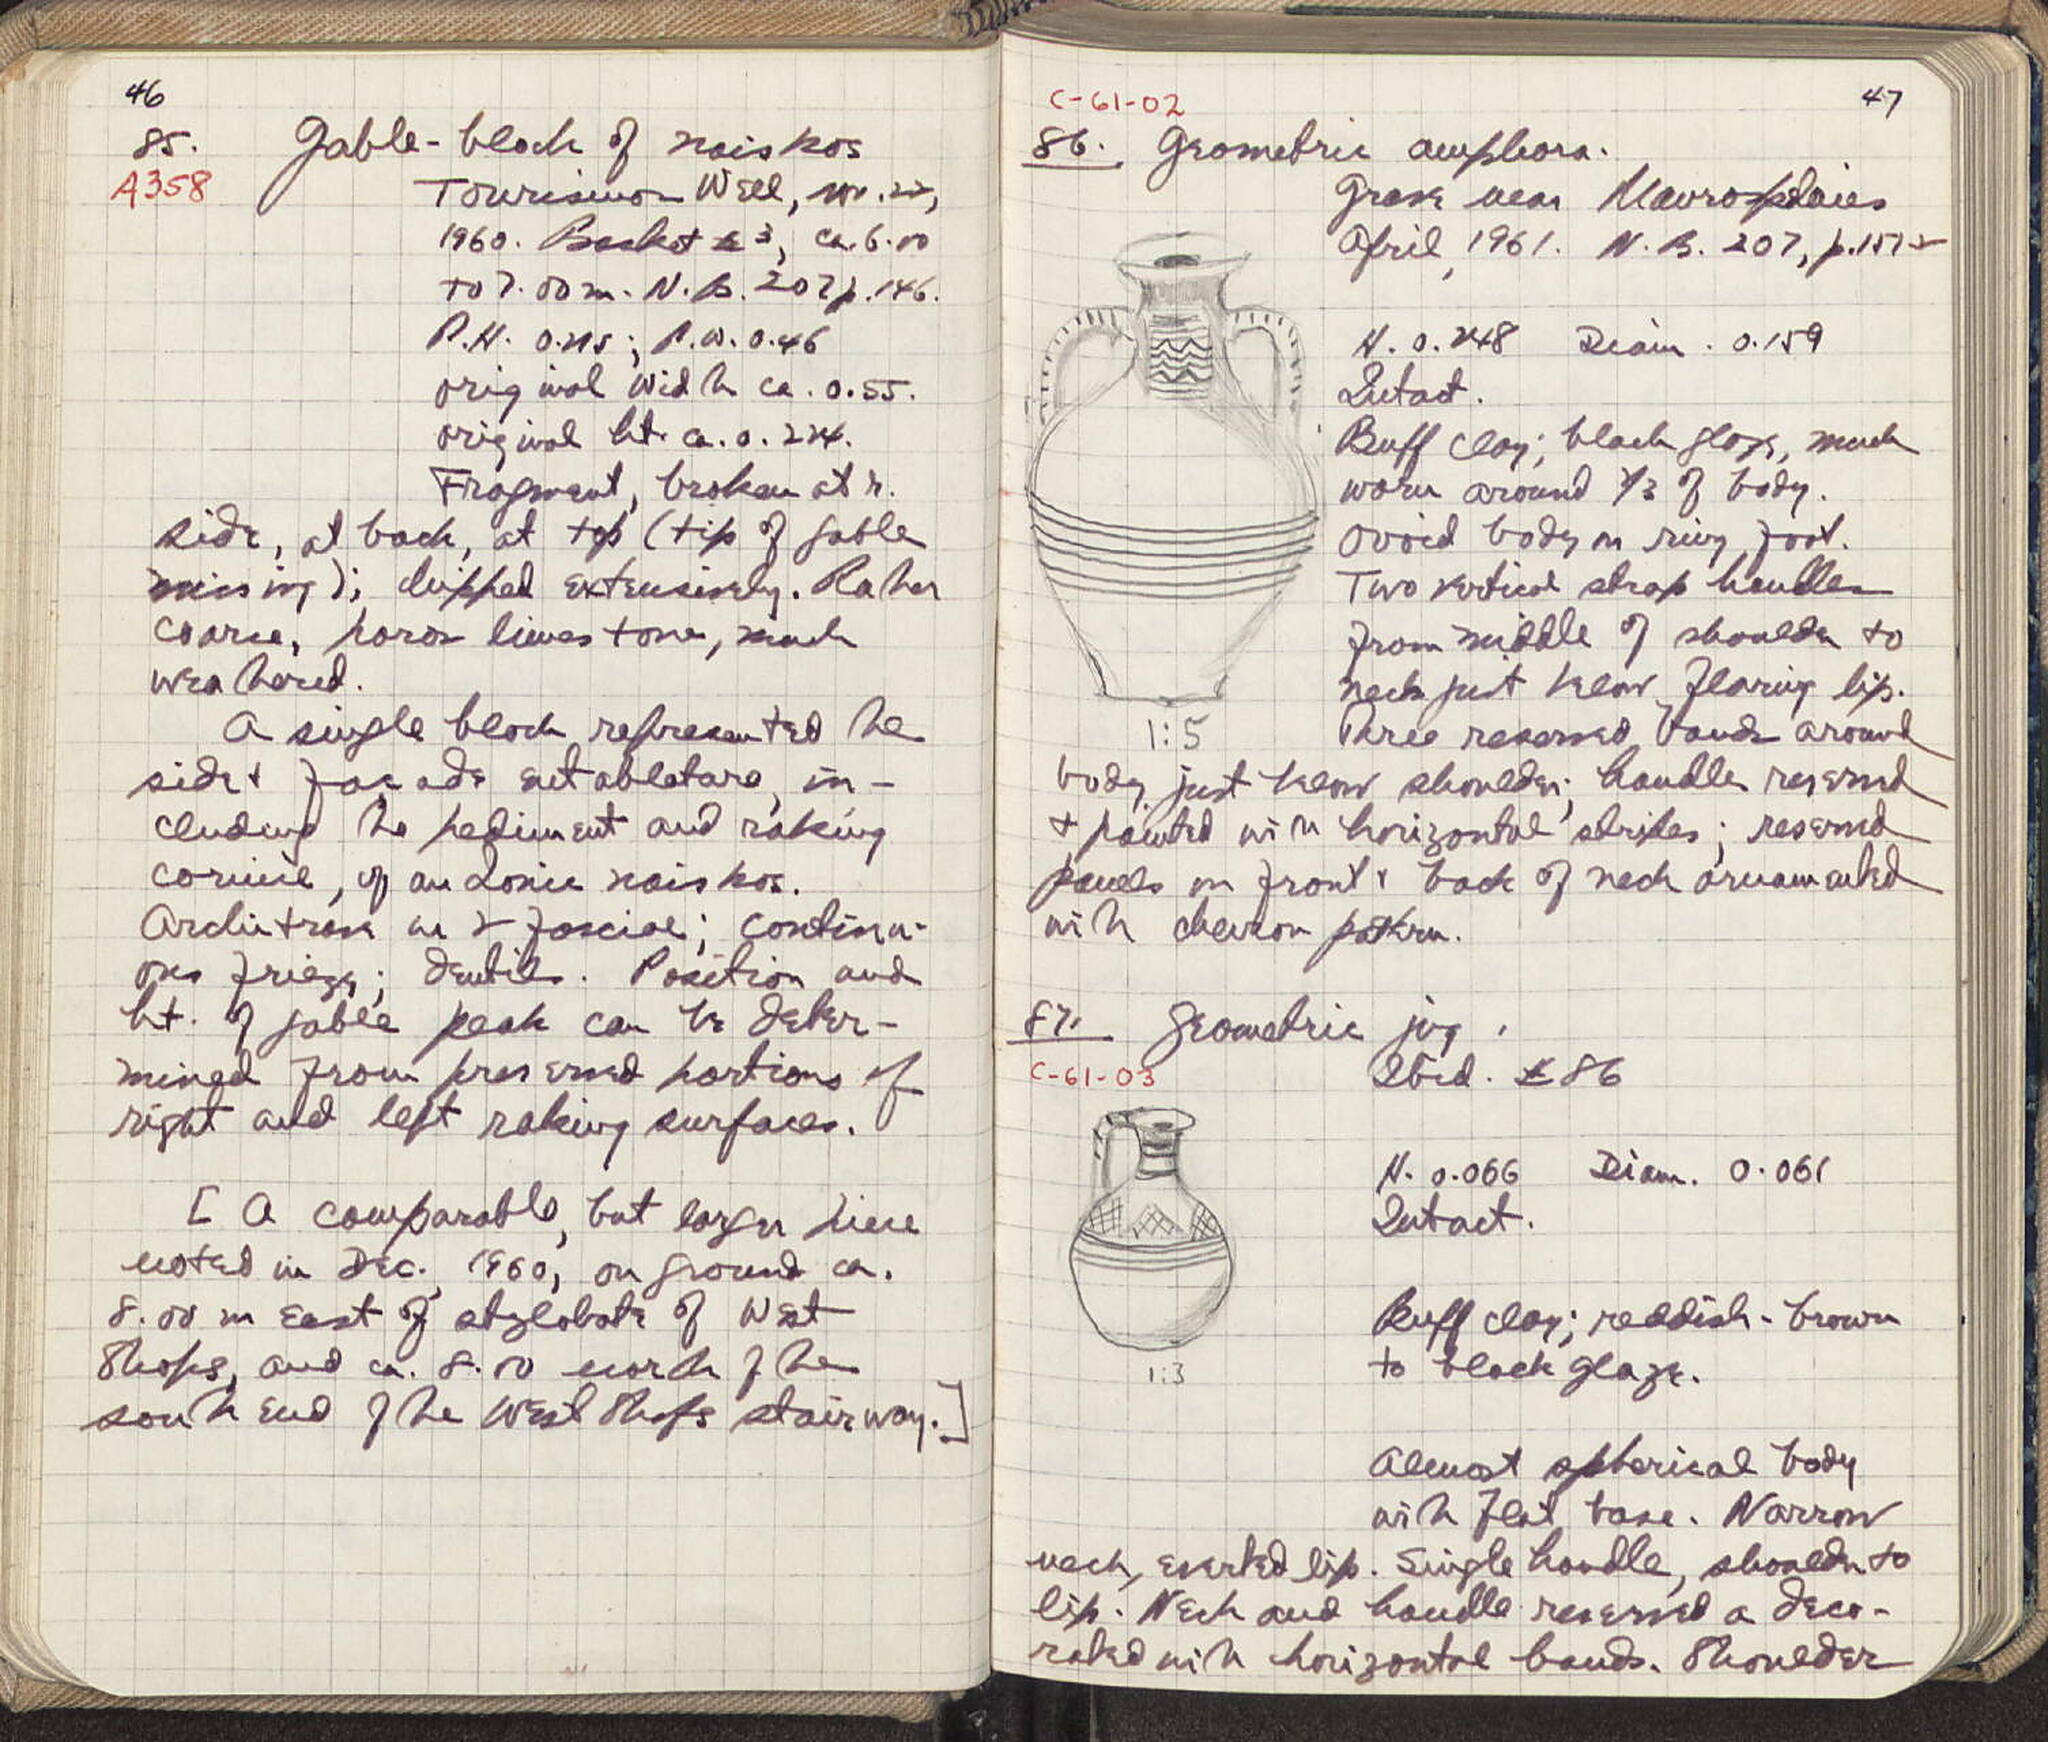 46
85. Gable-block of naiskos
A358 Tourismon Well,
1960. Basket 3, ca. 6.00
to 7.00 m. N.B. 207 p. 146.
P.H. 0.215; P.W. 0.46
original width ca. 0.55.
original ht. ca. 0.224.
Fragment, broken at r.
side, at back, at top (tip of gable
missing); chipped extensively. Rather
coarse, poros limestone, much
weathered.
A single block represented the
side + facade entablature, in-
cluding the pediment and raking
cornice, of an Ionic naiskos.
Architrave in 2 fasciae; continu-
ous frieze; dentils. Position and
ht. of gable peak can be deter-
mined from preserved portions of
right and left raking surfaces.
[A comparable, but larger piece
noted in Dec., 1960, on ground ca.
8.00 m east of stylobate of West
Shops, and ca. 8.00 north of the
south end of the West Shops stairway.]
47
C-61-02
86. Geometric amphora.
Grave near Mavrospelaies
April, 1961. N.B. 207, p.
H. 0.248 Diam. 0.159
Intact.
Buff clay; black glaze, much
worn around 1/2 of body.
Ovoid body on ring foot.
Two vertical strap handles
from middle of shoulder to
neck just below flaring lip.
Three reserved bands around
body, just below shoulder; handles reserved
+ painted with horizontal stripes; reserved
panels on front + back of neck ornamented
with chevron pattern.
1:5
87. Geometric jug.
C-61-03 Ibid. # 86
H. 0.066 Diam. 0.061
Intact.
Buff clay; reddish-brown
to black glaze.
1:3
Almost spherical body
with flat base. Narrow
neck, everted lip. Single handle, shoulder to
lip. Neck and handle reserved a deco-
rated with horizontal bands. Shoulder